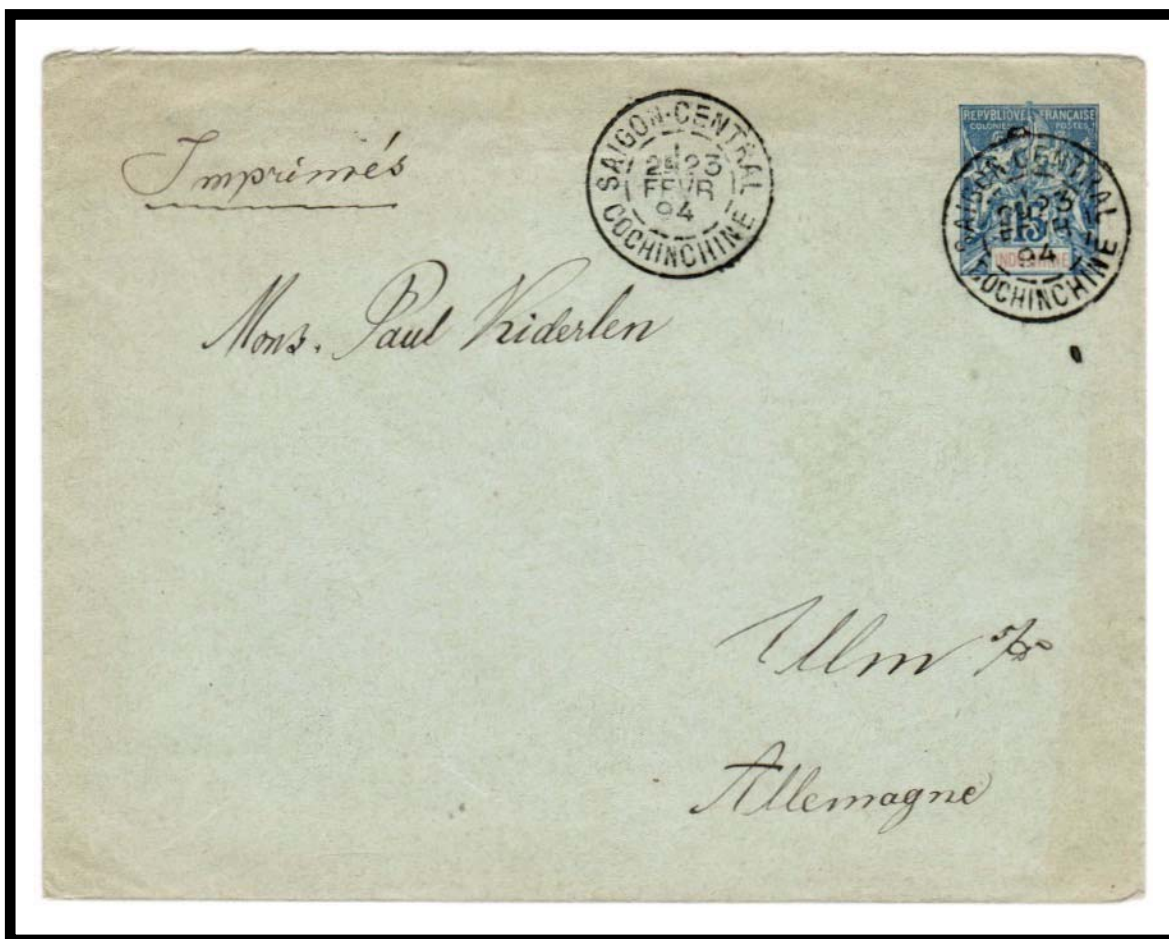 Imprimés
SAIGON-CENTRAL
23
FEVR
94
COCHINCHINE
REPVBLIQVE FRANÇAISE
COLONIES POSTES
15
INDO-CHINE
SAIGON-CENTRAL
23
94
COCHINCHINE
Mons. Paul Kiderlen
Ulm
Allemagne